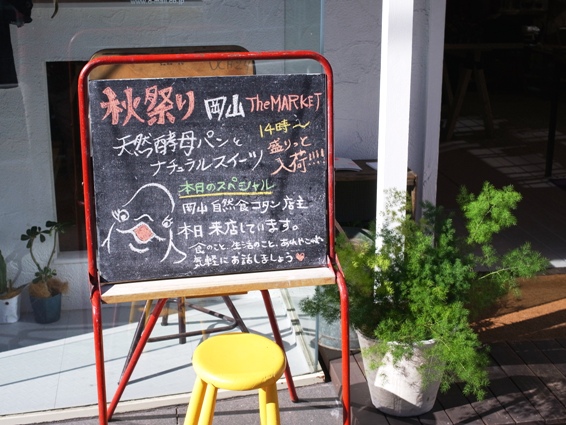 秋祭り 岡山 The MARKET
天然酵母パンと
ナチュラルスイーツ
14時〜
盛りっと
入荷!!!!
本日のスペシャル
岡山 自然食コタン 店主
本日 来店しています。
食のこと、生活のこと、あれやこれや
気軽にお話しましょう♥